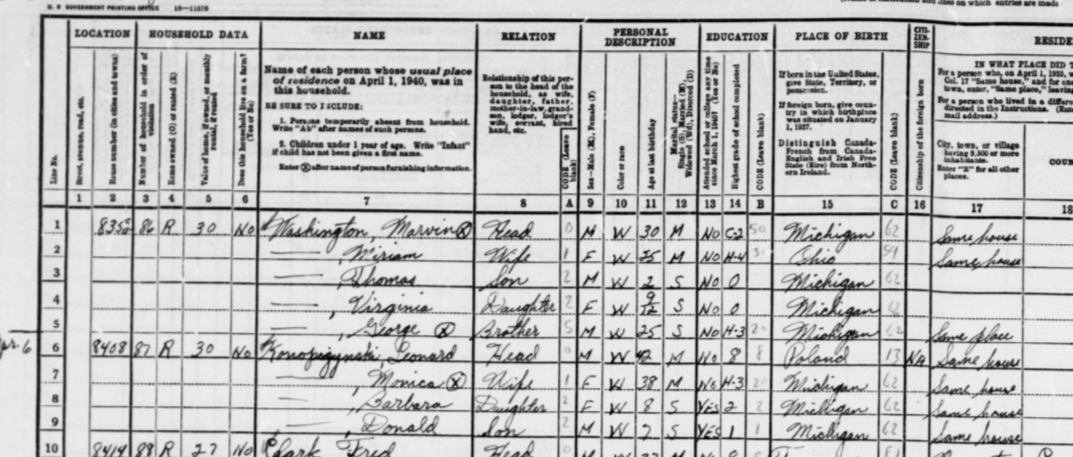 U. S. GOVERNMENT PRINTING OFFICE 16—11576
lines on which entries are made
LOCATION HOUSEHOLD DATA NAME RELATION PERSONAL DESCRIPTION EDUCATION PLACE OF BIRTH CITI- ZEN- SHIP RESIDE
Line No.
Street, avenue, road, etc.
House number (in cities and towns)
Number of household in order of visitation
Home owned (O) or rented (R)
Value of home, if owned, or monthly rental, if rented
Does this household live on a farm? (Yes or No)
Name of each person whose usual place
of residence on April 1, 1940, was in
this household.
BE SURE TO INCLUDE:
1. Persons temporarily absent from household.
Write "Ab" after names of such persons.
2. Children under 1 year of age. Write "Infant"
if child has not been given a first name.
Enter Ⓧ after name of person furnishing information.
Relationship of this per-
son to the head of the
household, as wife,
daughter, father,
mother-in-law, grand-
son, lodger, lodger's
wife, servant, hired
hand, etc.
CODE (Leave blank)
Sex—Male (M), Female (F)
Color or race
Age at last birthday
Marital status—
Single (S), Married (M),
Widowed (Wd), Divorced (D)
Attended school or college any time
since March 1, 1940? (Yes or No)
Highest grade of school completed
CODE (Leave blank)
If born in the United States,
give State, Territory, or
possession.
If foreign born, give coun-
try in which birthplace
was situated on January
1, 1937.
Distinguish Canada-
French from Canada-
English and Irish Free
State (Eire) from North-
ern Ireland.
CODE (Leave blank)
Citizenship of the foreign born
IN WHAT PLACE DID T
For a person who, on April 1, 1935,
Col. 17 "Same house," and for one
town, enter, "Same place," leaving
For a person who lived in a differen
directed in the Instructions. (Ente
mail address.)
City, town, or village
having 2,500 or more
inhabitants.
Enter "R" for all other
places.
COUN
1 2 3 4 5 6 7 8 A 9 10 11 12 13 14 B 15 C 16 17 18
1 8352 86 R 30 No Washington, Marvin Ⓧ Head 0 M W 30 M No C-2 50 Michigan 62 Same house
2 ——, Miriam Wife 1 F W 25 M No H-4 30 Ohio 59 Same house
3 ——, Thomas Son 2 M W 2 S No 0 Michigan 62
4 ——, Virginia Daughter 2 F W 9/12 S No 0 Michigan 62
5 ——, George Ⓧ Brother 5 M W 25 S No H-3 20 Michigan 62 Same place
pr. 6
6 8408 87 R 30 No Konopizynski Leonard Head 0 M W 42 M No 8 8 Poland 13 NA Same house
7 ——, Monica Ⓧ Wife 1 F W 38 M No H-3 20 Michigan 62 Same house
8 ——, Barbara Daughter 2 F W 8 S Yes 2 2 Michigan 62 Same house
9 ——, Donald Son 2 M W 7 S Yes 1 1 Michigan 62 Same house
10 8414 88 R 27 No Clark Fred Head